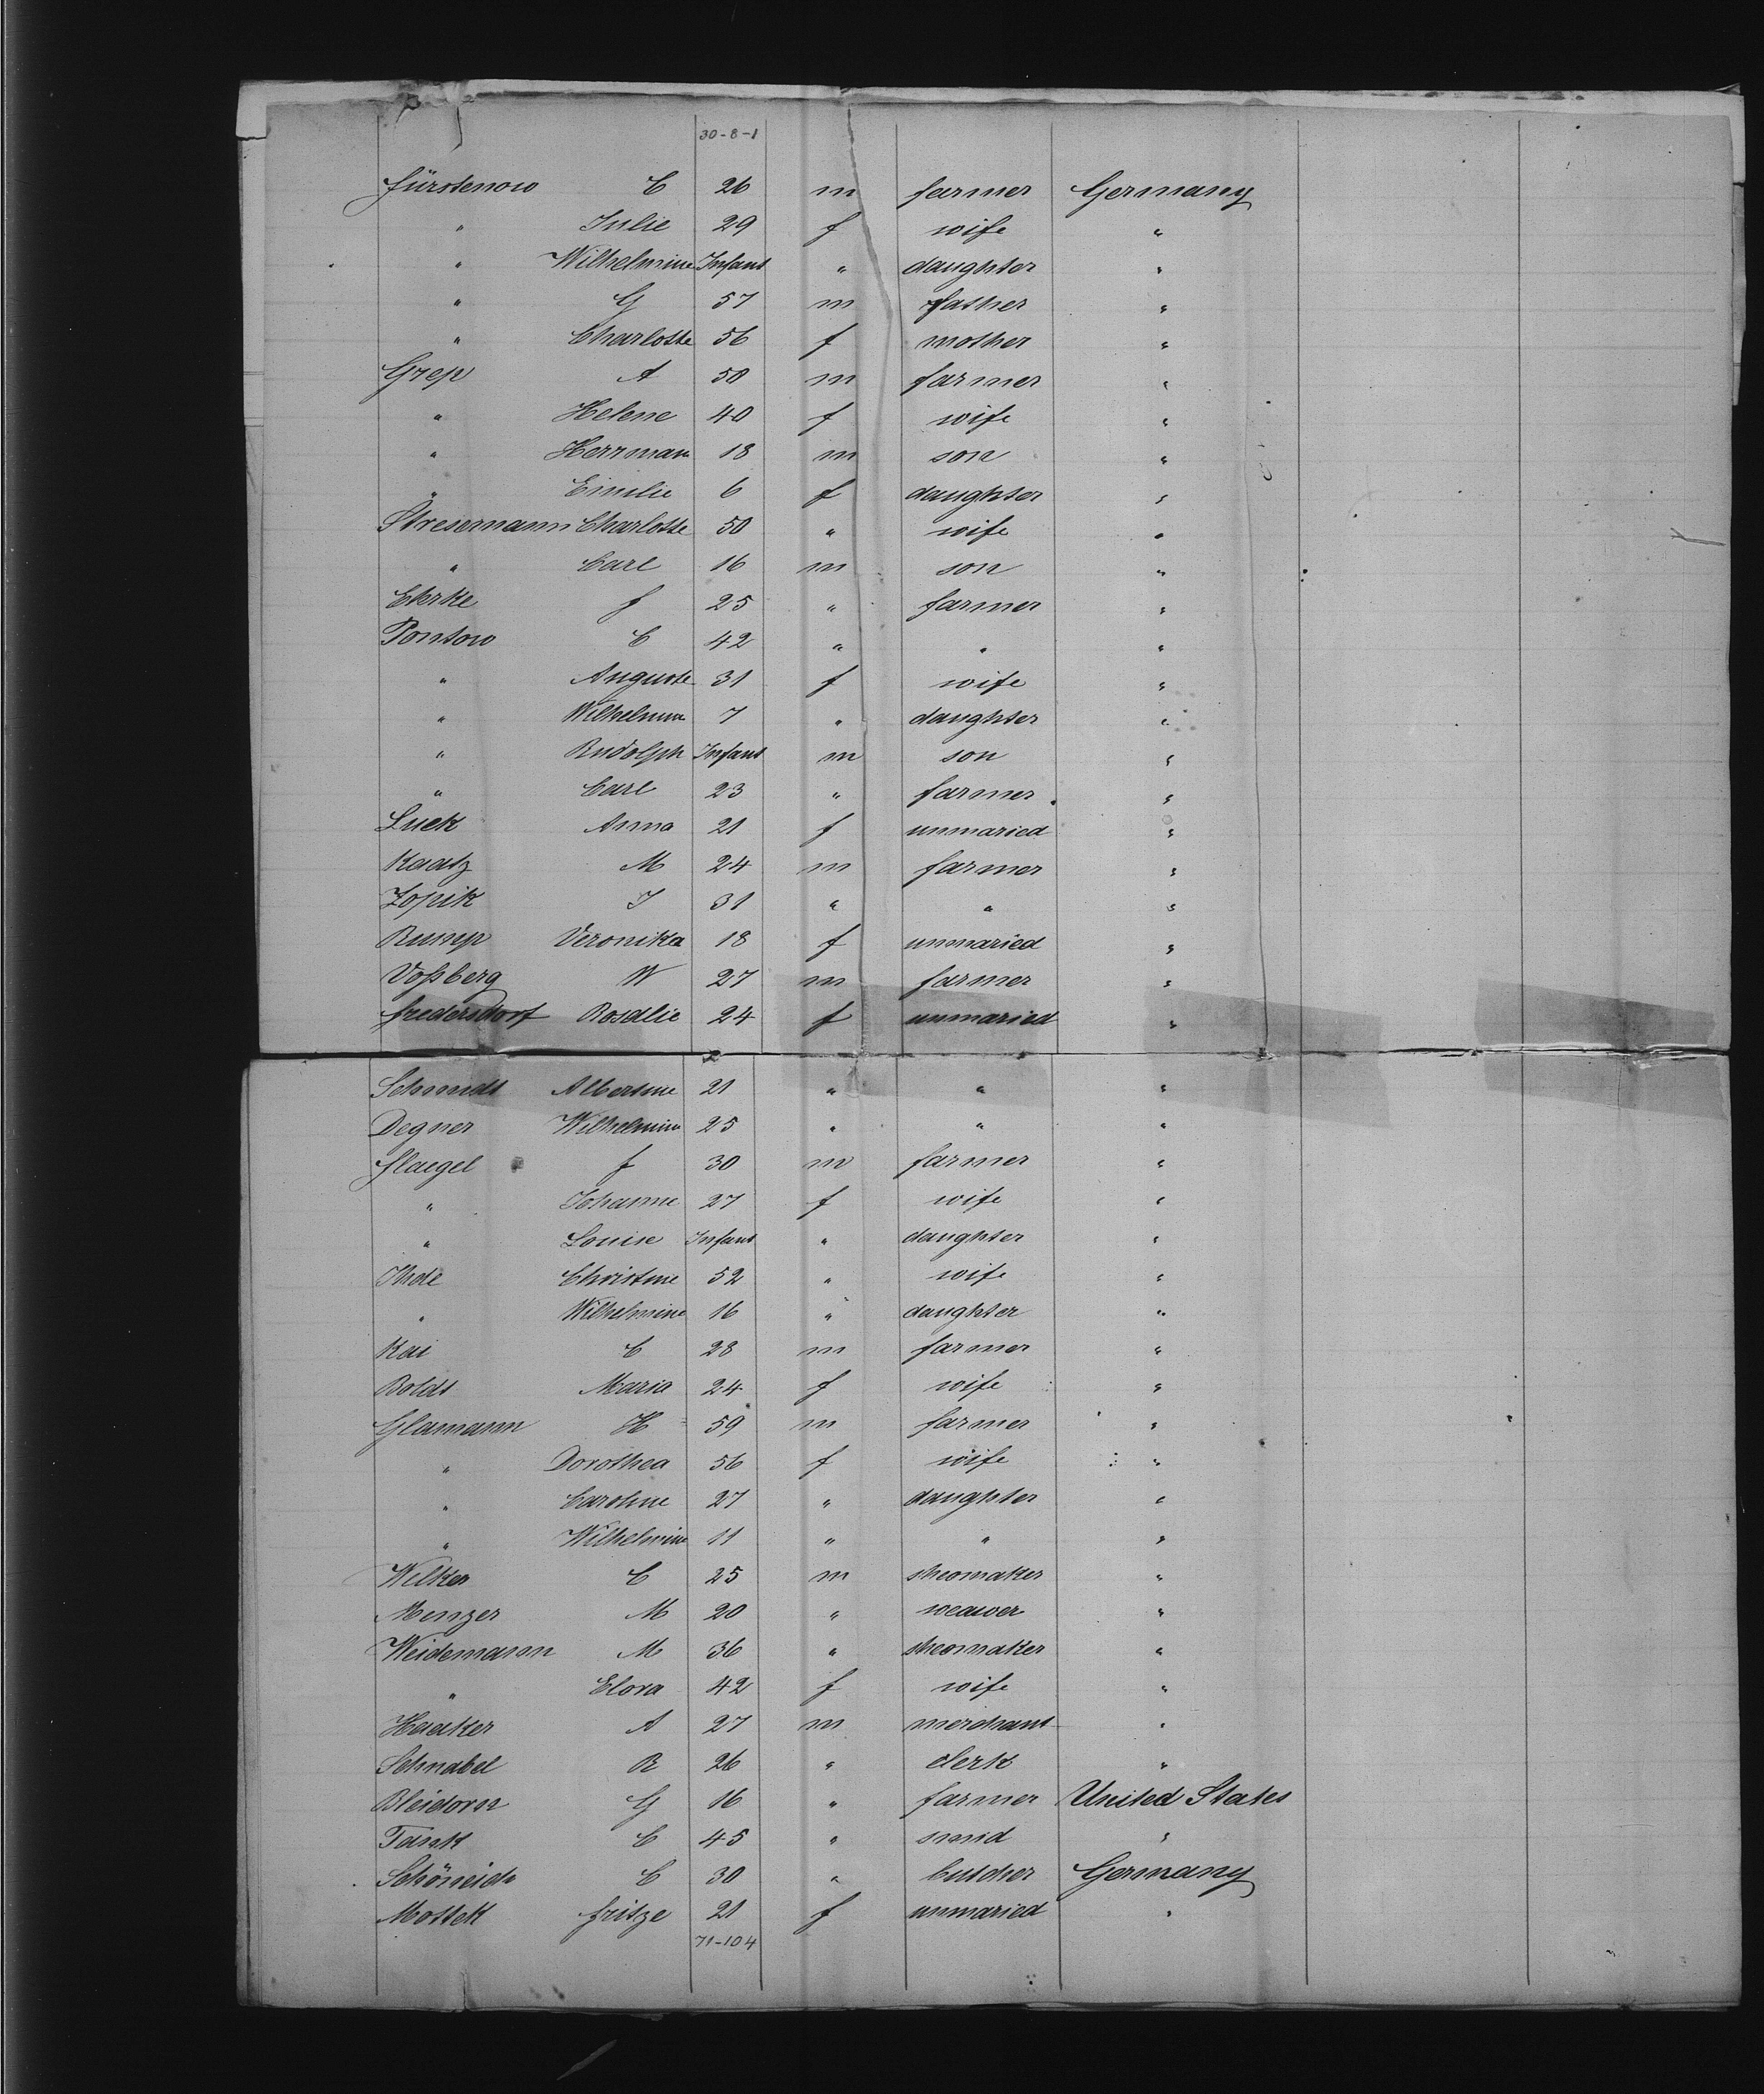 30-8-1
Fürstenow C 26 m farmer Germany
" Julie 29 f wife "
" Wilhelmine Infant " daughter "
" G 57 m father "
" Charlotte 56 f mother "
Grep A 50 m farmer "
" Helene 40 f wife "
" Herrman 18 m son "
" Emilie 6 f daughter "
Stresemann Charlotte 50 " wife "
" Carl 16 m son "
Ekrke F 25 " farmer "
Pontow C 42 " " "
" Auguste 31 f wife "
" Wilhelmine 7 " daughter "
" Rudolph Infant m son "
" Carl 23 " farmer "
Luek Anna 21 f unmaried "
Kaatz M 24 m farmer "
Zopik J 31 " " "
Rump Veronika 18 f unmaried "
Voßberg W 27 m farmer "
Fredersdorf Rosalie 24 f unmaried "
Schmidt Albertine 21 " " "
Degner Wilhelmine 25 " " "
Flaegel F 30 m farmer "
" Johanne 27 f wife "
" Louise Infant " daughter "
Thde Christine 52 " wife "
" Wilhelmine 16 " daughter "
Kai C 28 m farmer "
Boldt Maria 24 f wife "
Glamann H 59 m farmer "
" Dorothea 56 f wife "
" Caroline 27 " daughter "
" Wilhelmine 11 " " "
Wilker C 25 m sheomaker "
Menzer M 20 " weawer "
Weidemann M 36 " sheomaker "
" Elora 42 f wife "
Haaker A 27 m merchant "
Schnabel R 26 " clerk "
Bleidorn G 16 " farmer United States
Tank C 45 " smid "
Schöneich C 30 " butcher Germany
Mottek Fritze 21 f unmaried "
71-104